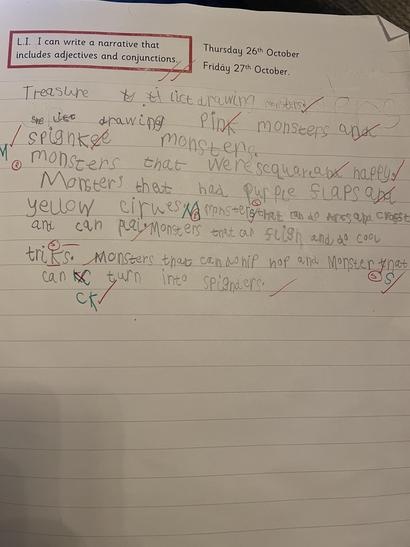 L.I. I can write a narrative that
includes adjectives and conjunctions.
Thursday 26th October
Friday 27th October.
Treasure ti lict drawim monsters
she lict drawing Pink monsters and
spignkee monsters.
M
monsters that were and happy
Monsters that had purple flaps and
yellow monsters that can do and
ant can Monsters that can fligh and do cool
triks. Monsters that can do hip hop and Monster that
can turn into spignders.
s
ck